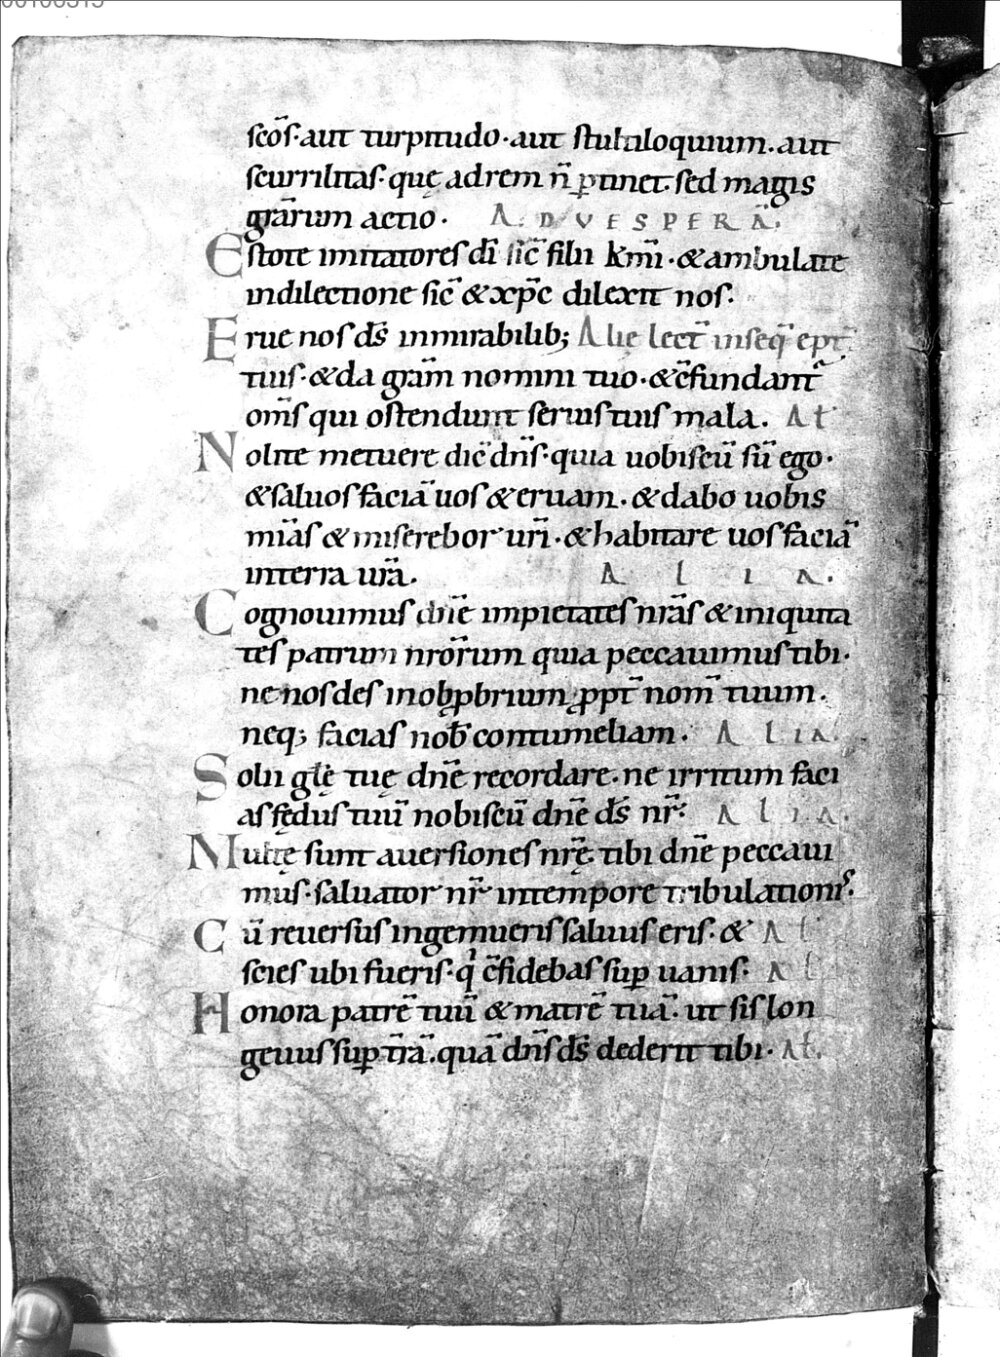 00106315
sc̄os· aut turpitudo· aut stultiloquium. aut
scurrilitas· quę ad rem n̄ ꝑtinet· sed magis
gr̄arum actio· AD VESPERĀ.
Estote imitatores dī sic̄ filii km̄i· & ambulate
in dilectione sic̄ & xp̄c dilexit nos·
Erue nos d̄s in mirabilib; Alie lect̄ inseq̄
tuis· & da gram̄ nomini tuo· & c̄fundant̄
om̄s qui ostendunt seruis tuis mala. At
Nolite metuere dic̄ dn̄s· quia uobiscū sū ego·
& saluos faciā uos & eruam· & dabo uobis
mīas & miserebor uri̅· & habitare uos faciā
in terra ur̄a. ALIA.
Cognouimus dn̄e impietates nr̄as & iniquita
tes patrum nr̄orum quia peccauimus tibi·
ne nos des in obꝓbrium ꝓpt̄ nom̄ tuum.
neq; facias nob̄ contumeliam. ALIA.
Solii gl̄ę tuę dn̄e recordare· ne irritum faci
as fędus tuū nobiscū dn̄e d̄s nr̄· ALIA.
Multę sunt auersiones nr̄ę· tibi dn̄e peccaui
mus· saluator nr̄ in tempore tribulationis·
Cū reuersus ingemueris saluus eris· & Al
scies ubi fueris· q̇ c̄fidebas suꝑ uanis· Al
Honora patrē tuū & matrē tuā· ut sis lon
geuus suꝑ tr̄ā· quā dn̄s d̄s dederit tibi· At.